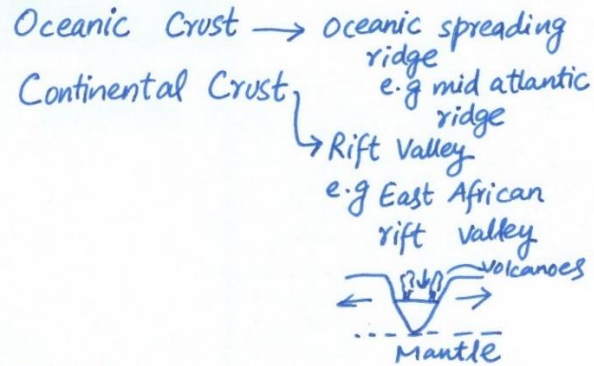 Oceanic Crust → Oceanic spreading
ridge
e.g mid atlantic
ridge
Continental Crust
↳ Rift Valley
e.g East African
rift valley
volcanoes
Mantle